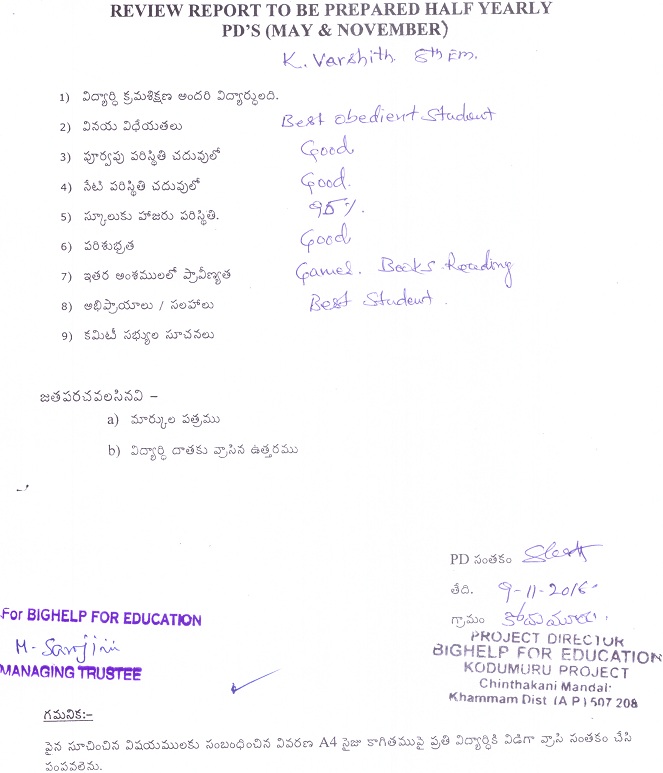 REVIEW REPORT TO BE PREPARED HALF YEARLY
PD'S (MAY & NOVEMBER)
K. Varshith 8th Em.
1) విద్యార్ధి క్రమశిక్షణ అందరి విద్యార్థులది.
2) వినయ విధేయతలు Best obedient Student
3) పూర్వపు పరిస్థితి చదువులో Good
4) నేటి పరిస్థితి చదువులో Good.
5) స్కూలుకు హాజరు పరిస్థితి. 95%.
6) పరిశుభ్రత Good
7) ఇతర అంశములలో ప్రావీణ్యత Games. Books Reading
8) అభిప్రాయాలు / సలహాలు Best Student.
9) కమిటీ సభ్యుల సూచనలు
జతపరచవలసినవి –
a) మార్కుల పత్రము
b) విద్యార్ధి దాతకు వ్రాసిన ఉత్తరము
PD సంతకం
తేది. 9-11-2016-
గ్రామం కోదుమూరు.
For BIGHELP FOR EDUCATION
M. Sarojini
MANAGING TRUSTEE
PROJECT DIRECTOR
BIGHELP FOR EDUCATION
KODUMURU PROJECT
Chinthakani Mandal.
Khammam Dist (A P) 507 208
గమనిక:–
పైన సూచించిన విషయములకు సంబంధించిన వివరణ A4 సైజు కాగితముపై ప్రతి విద్యార్ధికి విడిగా వ్రాసి సంతకం చేసి
పంపవలెను.